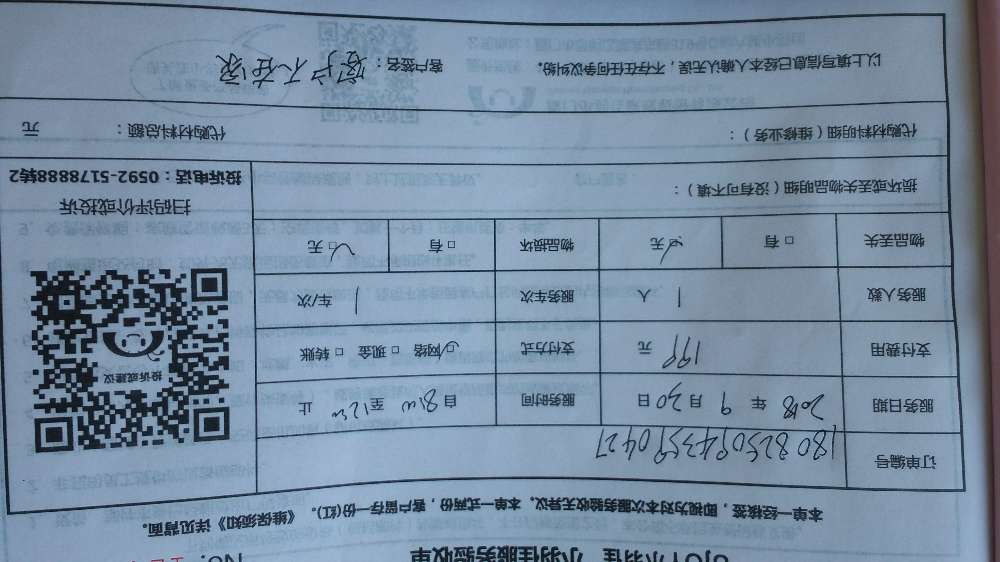 小羽佳 小羽佳服务验收单 No.
本单一经核签，即视为对本次服务验收无异议。本单一式两份，客户留存一份(红)。《维保须知》详见背面。
订单编号 1808250943590427
服务日期 2018 年 9 月 30 日 服务时间 自 8:00 至 12:00 止
支付费用 199 元 支付方式 ☑网络 □现金 □转账
服务人数 1 人 服务车次 1 车/次
物品丢失 □有 ☑无 物品损坏 □有 ☑无
损坏或丢失物品明细（没有可不填）：
投诉或建议
扫码评价或投诉
投诉电话：0592-5178888转2
代购材料明细（维修业务）： 代购材料总额： 元
以上填写信息已经本人确认无误，不存在任何争议纠纷。 客户签名：客户不在家